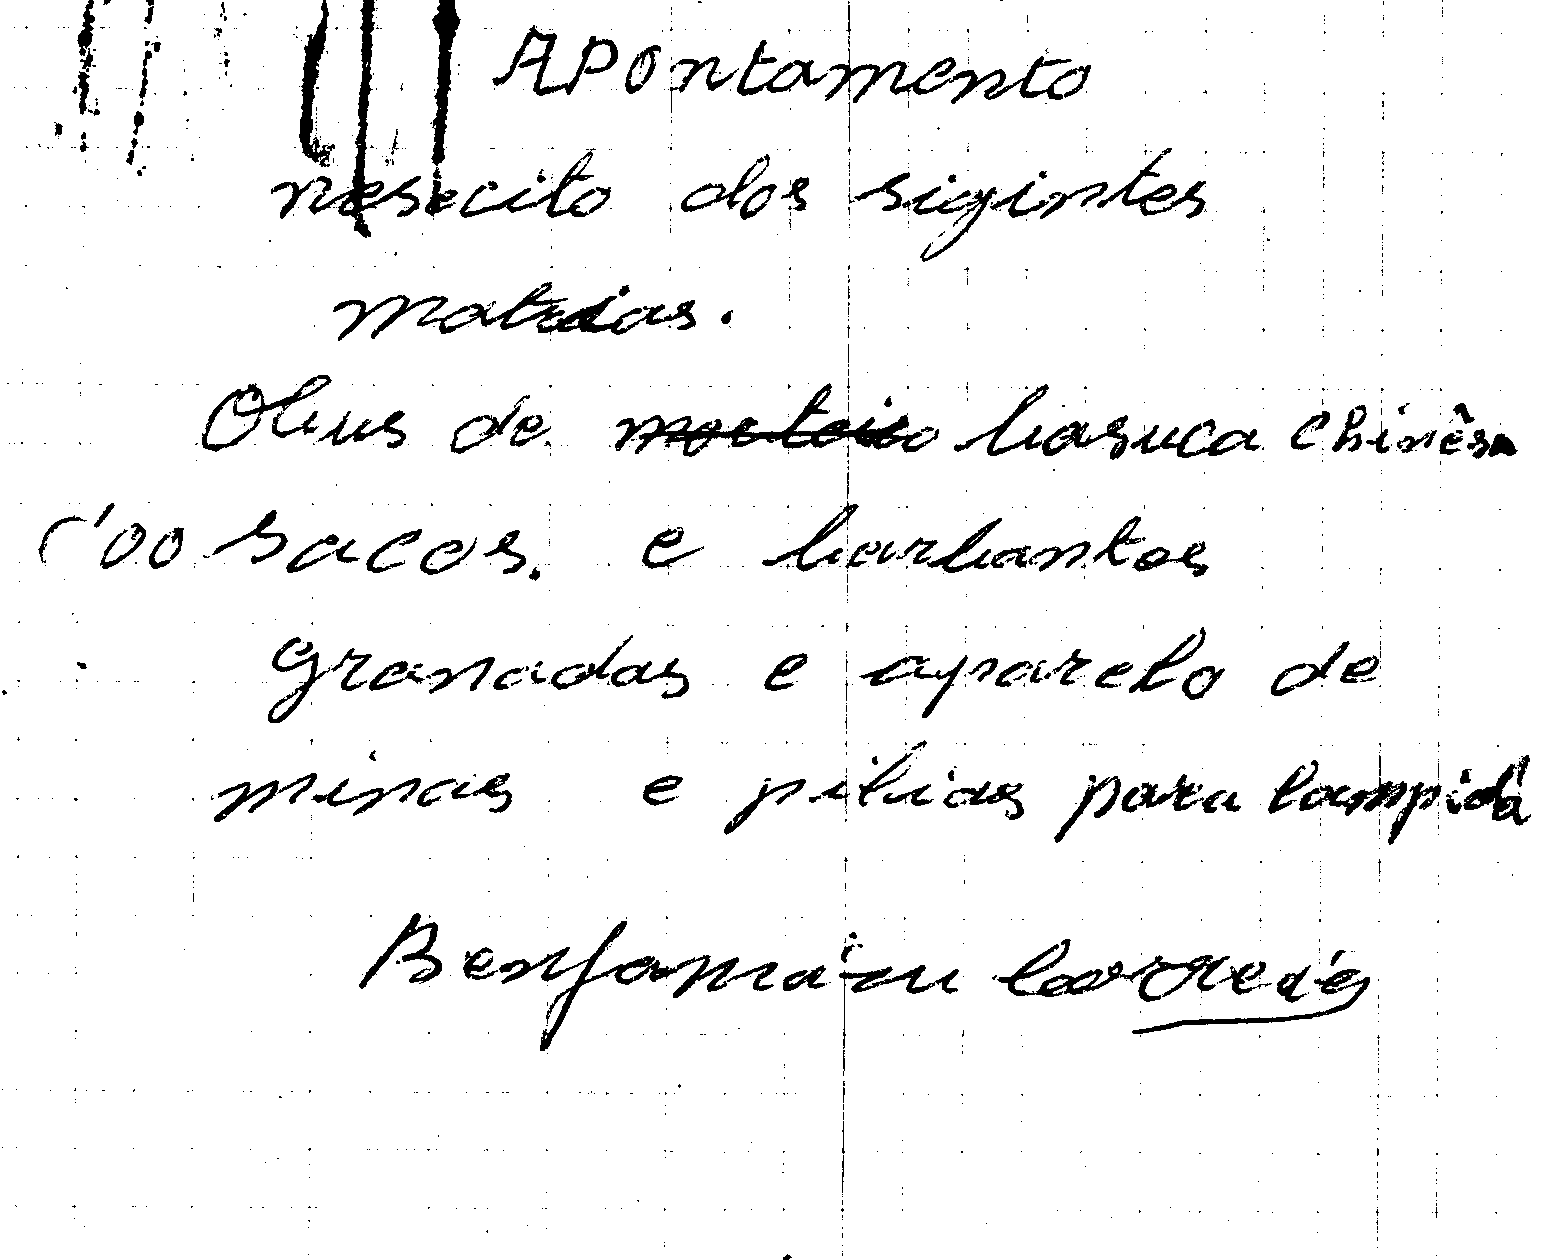 APontamento
nesecito dos sigintes
matrias.
Obus de morteiro basuca chinêsa
100 sacos. e barbantes
granadas e aparelo de
minas e pilias para lampida
Benjamim Correia